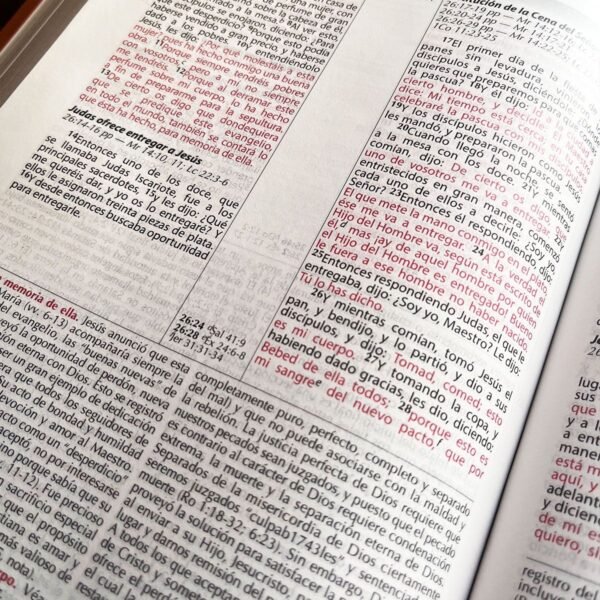 casa de
una mujer con
sobre la cabeza
esto, se enojaron,
este desperdicio? 9Porque esto podía
vendido a gran precio, y haberse
pobres. 10Y entendiéndolo
Jesús, les dijo: ¿Por qué molestáis a esta
mujer? pues ha hecho conmigo una buena
obra. 11Porque siempre tendréis pobres
con vosotros, pero a mí no siempre
me tendréis. 12Porque al derramar este
perfume sobre mi cuerpo, lo ha hecho
a fin de prepararme para la sepultura.
13De cierto os digo que dondequiera
que se predique este evangelio,
en todo el mundo, también se contará lo
que ésta ha hecho, para memoria de ella.
Judas ofrece entregar a Jesús
26:14-16 pp — Mr 14:10, 11; Lc 22:3-6
14Entonces uno de los doce, que
se llamaba Judas Iscariote, fue a los
principales sacerdotes, 15y les dijo: ¿Qué
me queréis dar, y yo os lo entregaré? Y
ellos le asignaron treinta piezas de plata.
16Y desde entonces buscaba oportunidad
para entregarle.
26:24 d Sal 41:9
26:28 e Éx 24:6-8
f Jer 31:31-34
Institución de la Cena del Se
26:17-19 pp — Mr 14:12-
26:20-24 pp — Mr 14:
26:26-29 pp — Mr 14:22-25;
17El primer día de la fiesta de
panes sin levadura, vinieron
discípulos a Jesús, diciéndole:
quieres que preparemos para que
la pascua? 18Y él dijo: Id a la ciudad a
cierto hombre, y decidle: El Maestro
dice: Mi tiempo está cerca; en tu casa
celebraré la pascua con mis discípulos.
19Y los discípulos hicieron como Jesús
les mandó, y prepararon la pascua.
20Cuando llegó la noche, se sentó
a la mesa con los doce. 21Y mientras
comían, dijo: De cierto os digo, que
uno de vosotros me va a entregar. 22Y
entristecidos en gran manera, comenzó
cada uno de ellos a decirle: ¿Soy yo,
Señor? 23Entonces él respondiendo, dijo:
El que mete la mano conmigo en el plato,
ése me va a entregar. 24A la verdad el
Hijo del Hombre va, según está escrito de
él, d mas ¡ay de aquel hombre por quien
el Hijo del Hombre es entregado! Bueno
le fuera a ese hombre no haber nacido.
25Entonces respondiendo Judas, el que le
entregaba, dijo: ¿Soy yo, Maestro? Le dijo:
Tú lo has dicho.
26Y mientras comían, tomó Jesús el
pan, y bendijo, y lo partió, y dio a sus
discípulos, y dijo: Tomad, comed; esto
es mi cuerpo. 27Y tomando la copa, y
habiendo dado gracias, les dio, diciendo:
Bebed de ella todos; 28porque esto es
mi sangre e del nuevo pacto, f que por
memoria de ella.
María (vv. 6-13) acompañaría siempre la
del evangelio, las "buenas nuevas" de
Jesús anunció que esta
reyó la oportunidad de perdón, nueva
ión eterna con Dios. Esto se registró
ser un gran ejemplo de dedicación
ra que todos los seguidores de
Su acto de bondad y humildad
evoción y amor al Maestro
acto como un "desperdicio"
ceptó, no por interesarse
no porque sabía que su
: 11,12). Fue precioso
sacrificio especial
que el propósito
tiana es amar y
más valioso de
nota).
po.
completamente puro, perfecto, completo y separado
del mal y que no puede asociarse con la maldad y
la rebelión. La justicia perfecta de Dios requiere que
nuestros pecados sean juzgados, y puesto que el pecado
es contrario al carácter de Dios requiere condenación
extrema, la muerte y la separación eterna de Dios.
Separados de la misericordia de Dios ciertamente
seremos juzgados "culpab1743les" y sentenciados a
muerte (Ro 1:18-32; 6:23). Sin embargo, Dios
proveyó la solución para satisfacer
al enviar a su Hijo, Jesucristo, para
lugar y darnos remisión del
A todos los que aceptan
de Cristo y someten
el cual la
vida
luga
sus
a entr
maner
está m
aquí, y
adelant
diciend
de mí es
quiero, si
registro del
incluyó